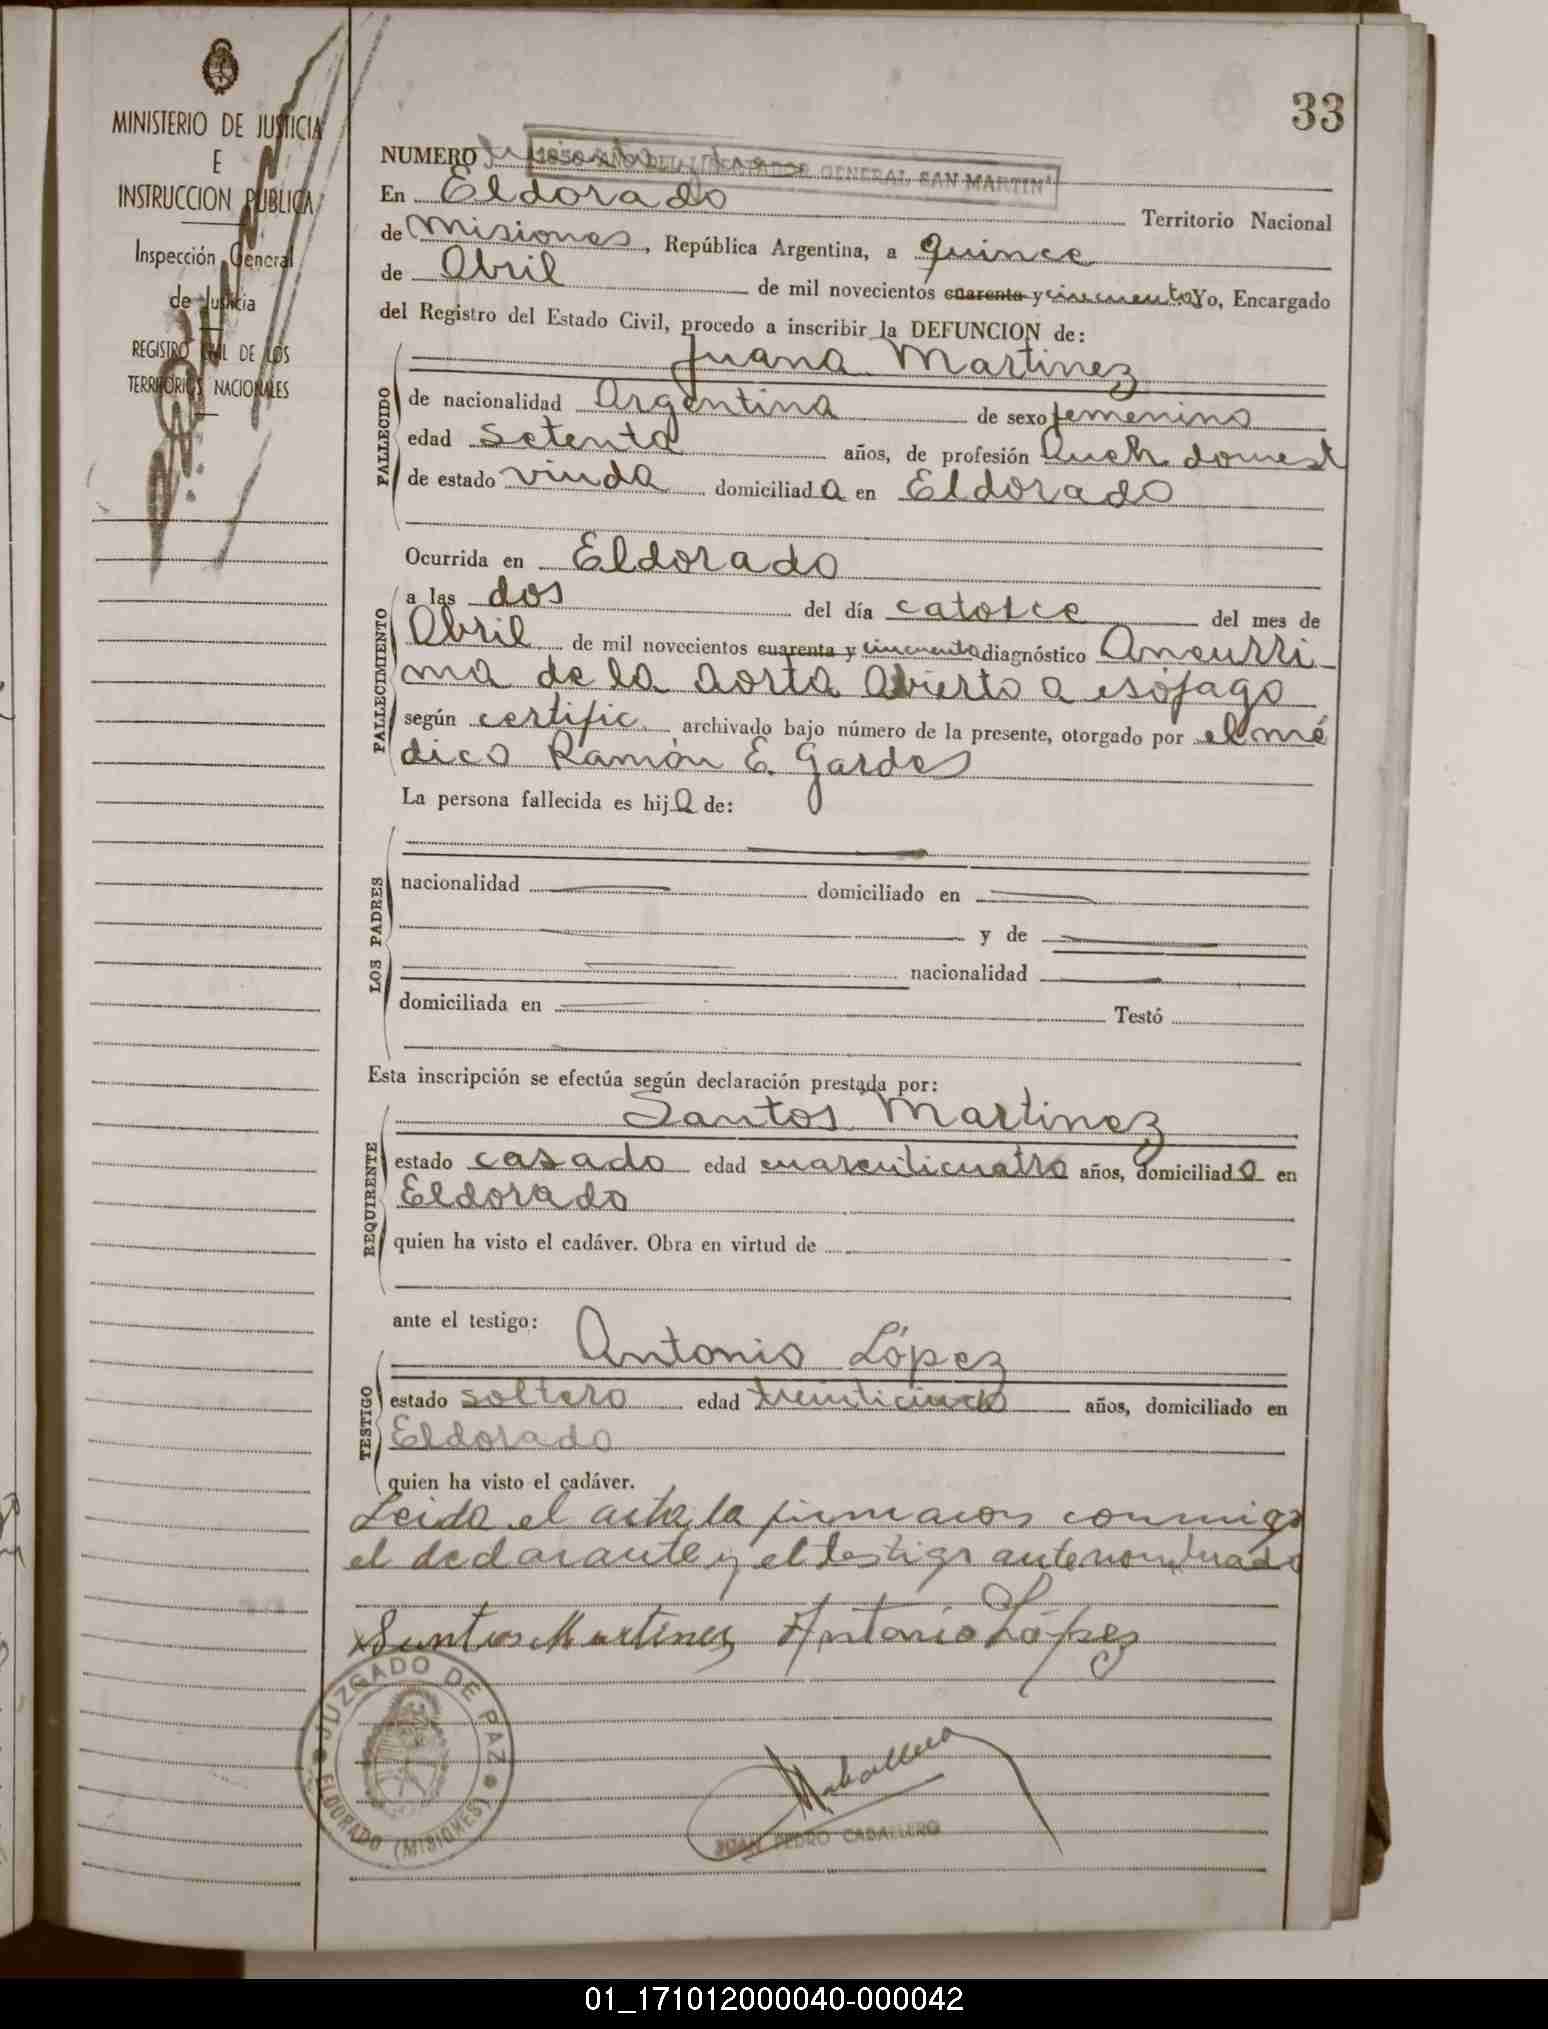 33
MINISTERIO DE JUSTICIA
E
INSTRUCCION PUBLICA
Inspección General
de Justicia
REGISTRO CIVIL DE LOS
TERRITORIOS NACIONALES
NUMERO
1950 AÑO DEL LIBERTADOR GENERAL SAN MARTIN
En Eldorado Territorio Nacional
de Misiones, República Argentina, a quince
de Abril de mil novecientos cuarenta y cincuenta Yo, Encargado
del Registro del Estado Civil, procedo a inscribir la DEFUNCION de:
Juana Martinez
FALLECIDO
de nacionalidad Argentina de sexo femenino
edad setenta años, de profesión Queh. domest
de estado viuda domiciliada en Eldorado
Ocurrida en Eldorado
FALLECIMIENTO
a las dos del día catorce del mes de
Abril de mil novecientos cuarenta y cincuenta diagnóstico Aneurri-
ma de la aorta abierto a esófago
según certific. archivado bajo número de la presente, otorgado por el mé
dico Ramón E. Gardes
La persona fallecida es hija de:
LOS PADRES
nacionalidad domiciliado en
y de
nacionalidad
domiciliada en Testó
Esta inscripción se efectúa según declaración prestada por:
Santos Martinez
REQUIRENTE
estado casado edad cuarenticuatro años, domiciliado en
Eldorado
quien ha visto el cadáver. Obra en virtud de
ante el testigo:
Antonio López
TESTIGO
estado soltero edad treinticinco años, domiciliado en
Eldorado
quien ha visto el cadáver.
Leida el acta, la firmaron conmigo
el declarante y el testigo antenombrado
Santos Martinez Antonio López
JUZGADO DE PAZ
ELDORADO (MISIONES)
JUAN PEDRO CABALLERO
01_171012000040-000042